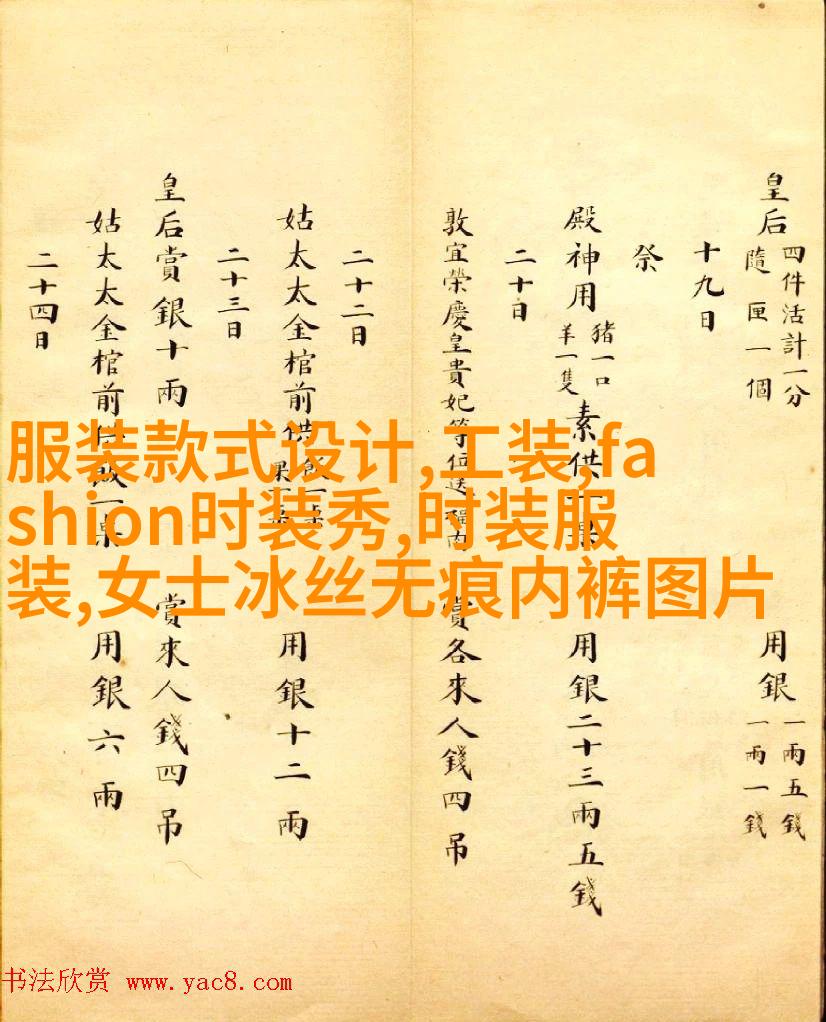 皇后 四件活計一分 隨匣一個 用銀 一兩五錢 一兩一錢
十九日
祭
殿神用 豬一口 羊一隻 素供一桌 用銀二十三兩五錢
二十日
敦宜榮慶皇貴妃等位送 賞各來人錢四吊
二十二日
姑太太金棺前供 飯一桌 果一桌 用銀十二兩
二十三日
皇后賞銀十兩 賞來人錢四吊
姑太太金棺前供飯一桌 用銀六兩
二十四日
服装款式设计,工装,fa
shion时装秀,时装服
装,女士冰丝无痕内裤图片
书法欣赏 www.yac8.com